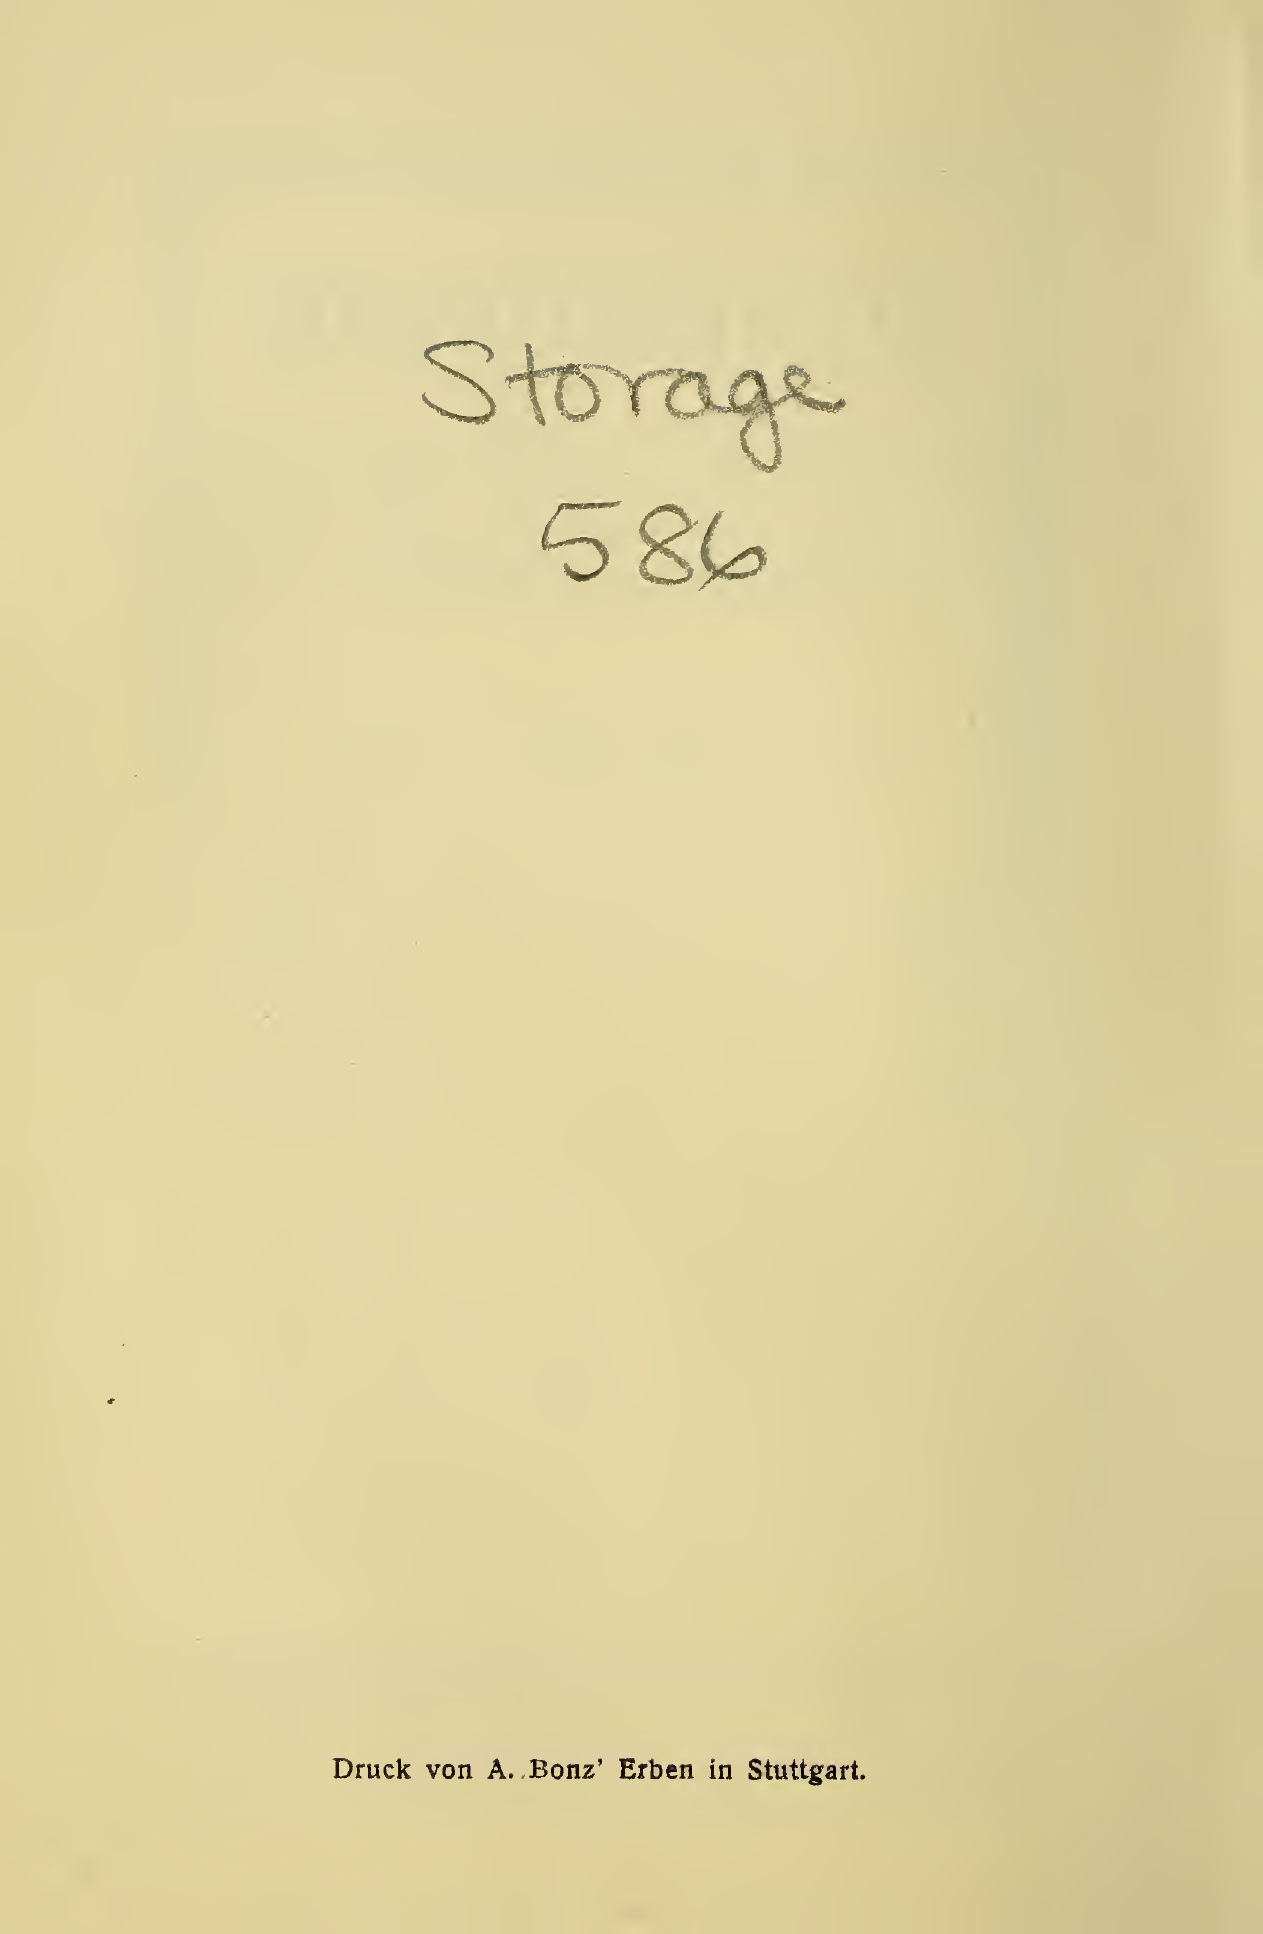 Storage
586
Druck von A. Bonz’ Erben in Stuttgart.